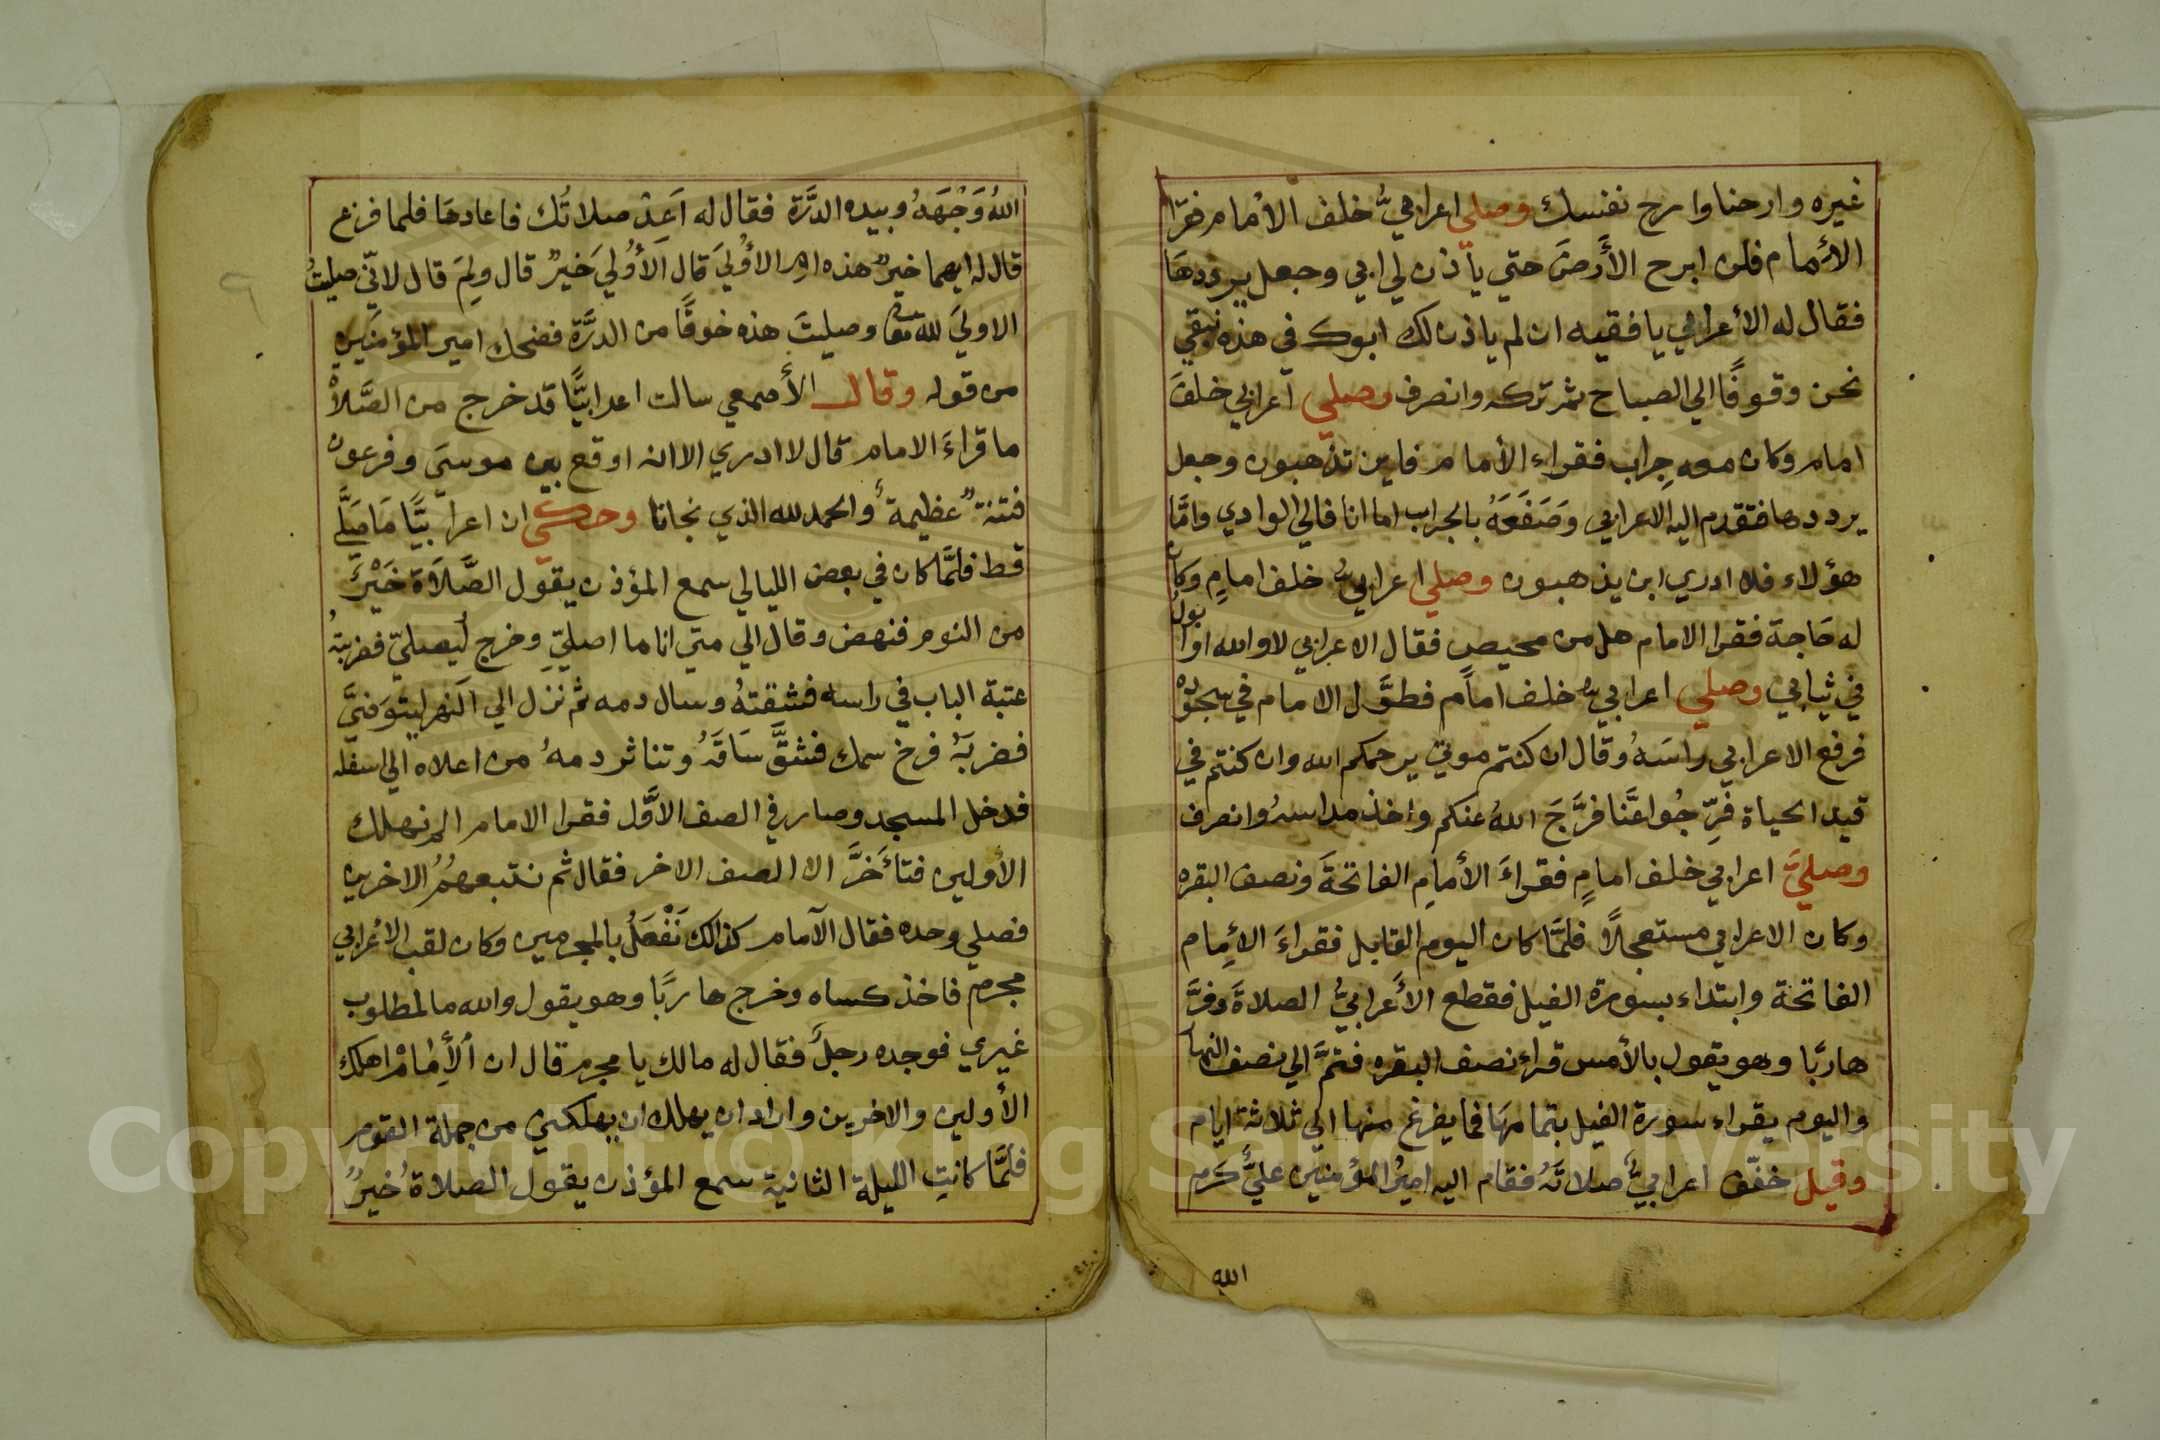 غيره وارحنا وارح نفسك وصلي اعرابيُّ خلف الأمام فقرا
الأمام فلن ابرح الأرضَ حتي يأذن لي ابي وجعل يرددهَا
فقال له الأعرابي يا فقيه ان لم ياذن لك ابوك في هذه نبقي
نحن وقوفًا الي الصباح ثم تركه وانصرف وصلي اعرابي خلفَ
امام وكان معه جِراب فقراء الأمام فاين تذهبون وجعل
يرددها فتقدم اليه الاعرابي وصَفَعَهُ بالجراب اما انا فالي الوادي وامَّا
هؤلاء فلا ادري اين يذهبون وصلي اعرابيُّ خلف امامٍ وكان
له حَاجة فقرا الامام هل من محيص فقال الاعرابي لا والله او ابول
في ثيابي وصلي اعرابيُّ خلف امام فطوَّل الامام في سجودهْ
فرفع الاعرابي راسَهُ وقال ان كنتم موتي يرحمكم الله وان كنتم في
قيد الحياة فرِّجُوا عَّنا فرَّجَ اللهُ عنكم واخذ مداسهُ وانصرف
وصليَّ اعرابي خلف امامٍ فقراءَ الأمامِ الفاتحةَ ونصف البقره
وكان الاعرابي مستعجلاً فلمَّا كان اليوم القابل فقراءَ الأمِام
الفاتحة وابتداء بسورة الفيل فقطع الأَعرابيُّ الصلاةَ وفرَّ
هاربًا وهو يقول بالأمس قراء نصف البقره فتمَّ الي نصف النهار
واليوم يقراء سورة الفيل بتمامهَا فما يفرغ منها الي ثلاثة ايام
وقيل خفّف اعرابيُّ صلاتَهُ فقام اليه اميرُ المؤمنين عليُّ كرم
الله
اللهُ وَجْهَهُ وبيده الدرَّة فقال له اَعِدْ صلاتُك فاعادهَا فلما فرغ
قال له ايهما خيرٌ هذه ام الاُوليَ قال الأُوليَ خيرٌ قال ولِمَ قال لانّي صليتُ
الاوليَ لله تعالي وصليتَ هذه خوفًا من الدرَّة فضحك امير المؤمنين
من قوله وقال الأصمعي سالت اعرابيًّا قد خرج من الصَّلاةْ
ما قراءَ الامام قال لا ادري الا انه اوقع بين موسيَ وفرعون
فتنةٌ عظيمةٌ والحمد لله الذي نجانا وحكي ان اعرابيًّا مَا صَلَّي
قط فلمَّا كان في بعض الليالي سمع المؤذن يقول الصَّلاَة خَيْرٌ
من النوم فنهض وقال الي متي انا ما اصليِّ وخرج ليصليّ فضربتهُ
عتبة الباب في راسه فشقتهُ وسال دمه ثم نزل الي النهر ليتوَضيَّ
فضربَهُ فرخ سمك فشقَّ سَاقَهُ وتناثر دمهُ من اعلاه الي اسفله
فدخل المسجد وصار في الصف الاوَّل فقرا الامام الم نهلك
الأولين فتأَخرَّ الا الصف الاخر فقال ثم نتبعهُمُ الاخرين
فصلي وحده فقال الآمام كذالك نَفْعَلُ بالمجرمين وكان لقب الأعرابي
مجرم فاخذ كساه وخرج هاربًا وهو يقول والله ما المطلوب
غيري فوجده رجلٌ فقال له مالك يا مجرم قال ان الأِمَامْ اهلك
الأولين والاخرين واراد ان يهلك ان يهلكني من جملة القوم
فلمَّا كانتِ الليلة الثانية سمع المؤذن يقول الصلاةُ خيرٌ
Copyright © King Saud University